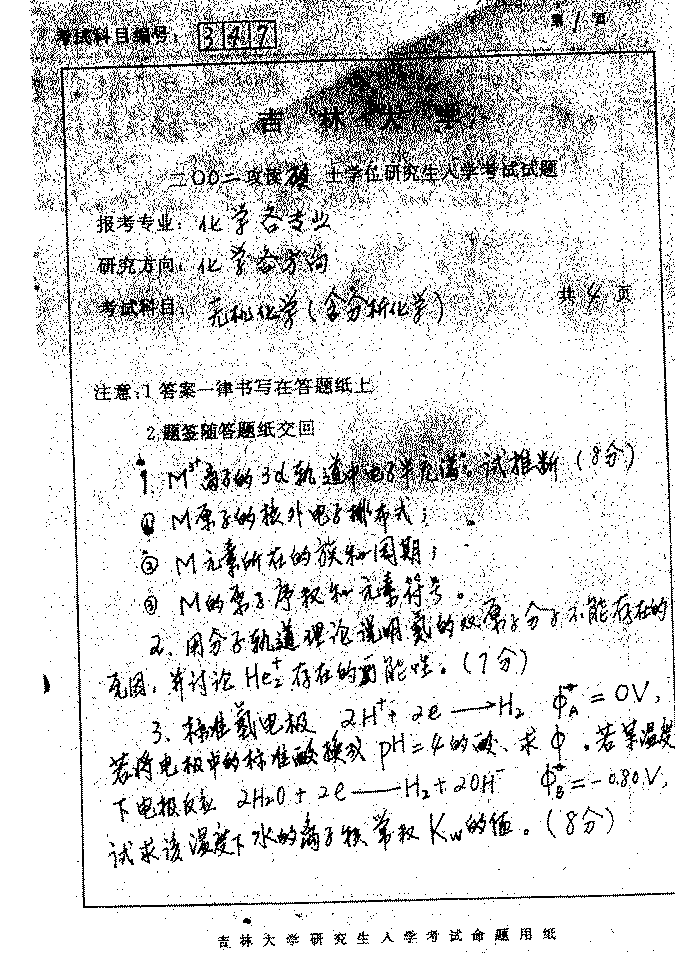 考试科目编号: 347
第1页
吉林大学
二00二攻读硕士学位研究生入学考试试题
报考专业: 化学各专业
研究方向: 化学各方向
考试科目: 无机化学(含分析化学) 共4页
注意:1答案一律书写在答题纸上
2题签随答题纸交回
1. M³⁺离子的3d轨道中电子半充满。试推断(8分)
① M原子的核外电子排布式;
② M元素所在的族和周期;
③ M的原子序数和元素符号。
2、用分子轨道理论说明氦的双原子分子不能存在的
原因,并讨论He₂⁺存在的可能性。(7分)
3、标准氢电极 2H⁺+2e→H₂ ϕ°A=0V,
若将电极中的标准酸换成pH=4的酸、求ϕ。若某温度
下电极反应 2H₂O+2e→H₂+2OH⁻ ϕ°B=-0.80V,
试求该温度下水的离子积常数Kw的值。(8分)
吉林大学研究生入学考试命题用纸